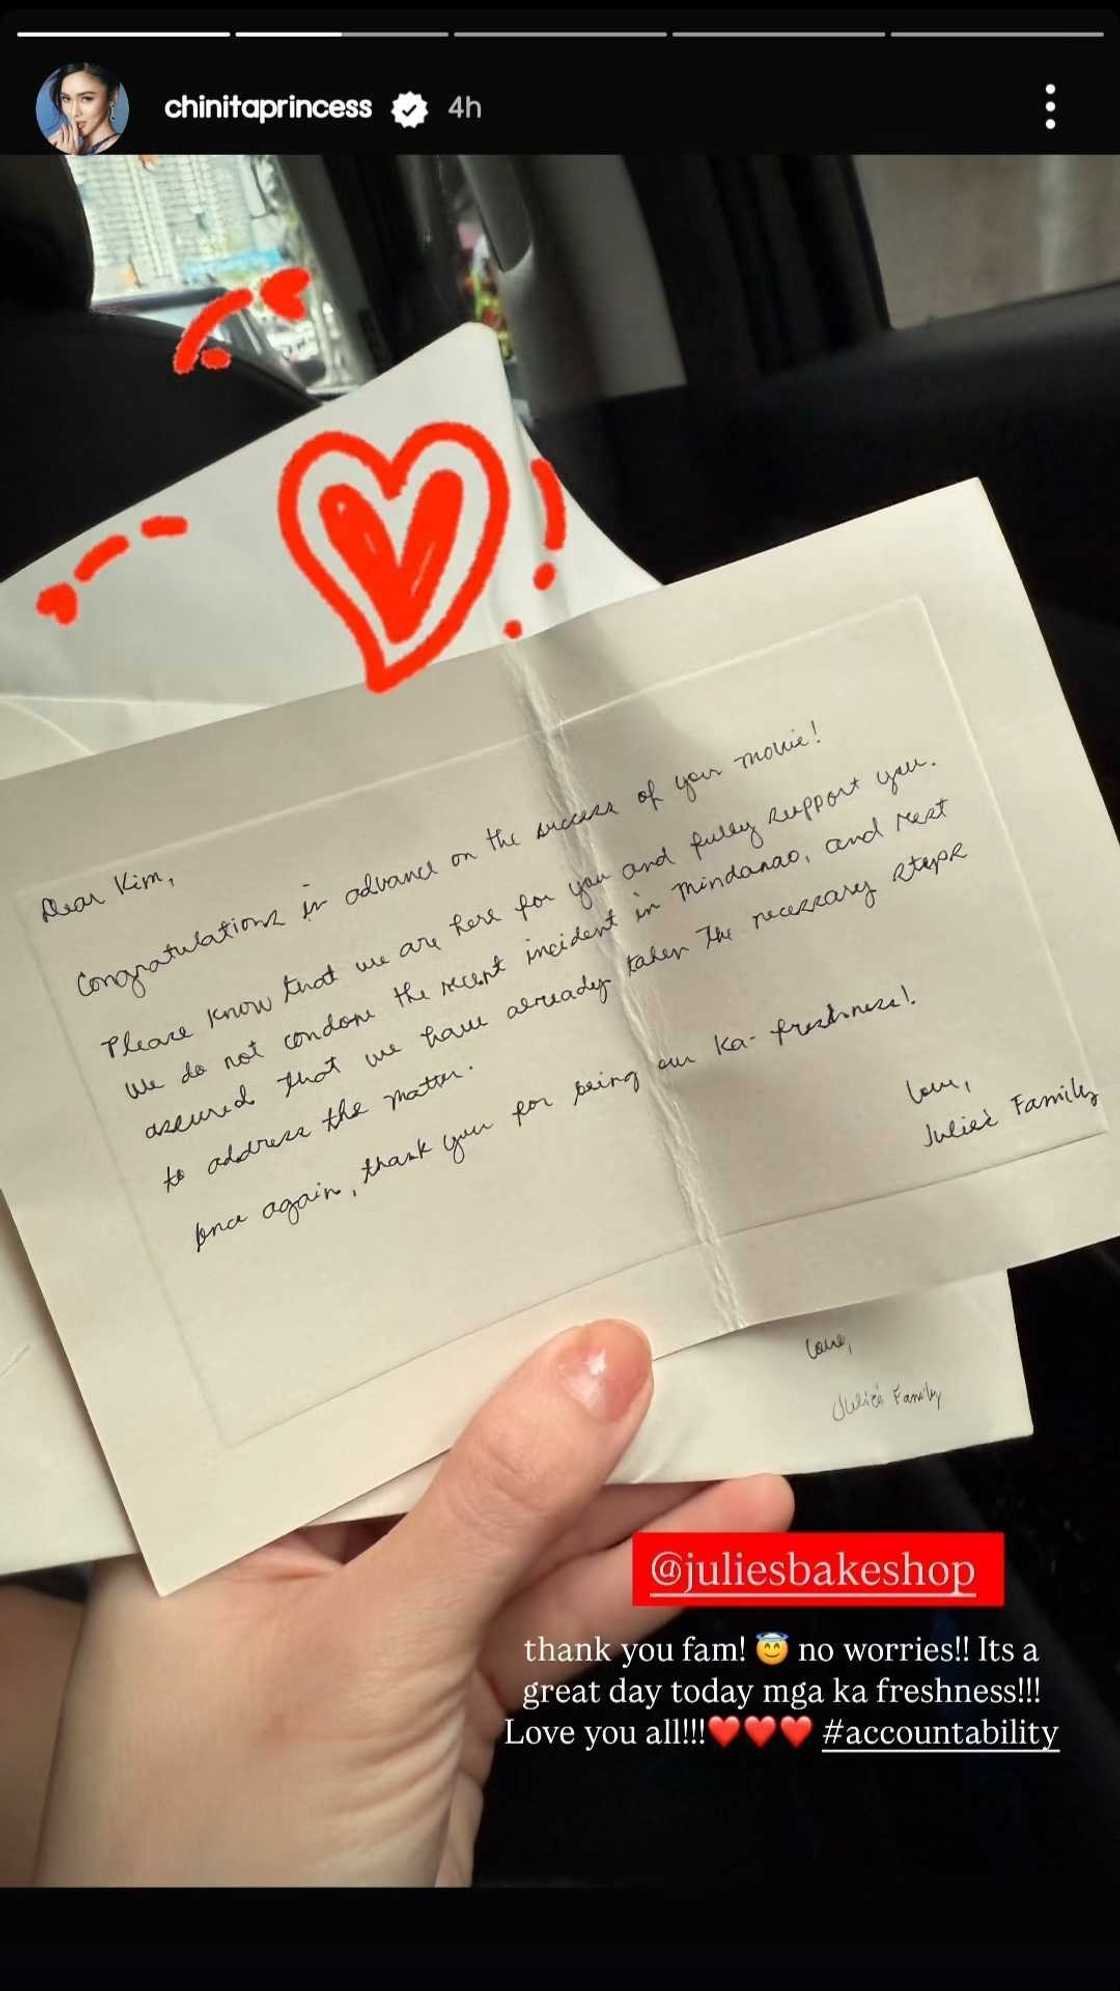 chinitaprincess 4h
Dear Kim,
Congratulations in advance on the success of your movie!
Please know that we are here for you and fully support you.
We do not condone the recent incident in Mindanao, and rest
assured that we have already taken the necessary steps
to address the matter.
Once again, thank you for being our ka-freshness!
Love,
Julie's Family
Love,
Julie's Family
@juliesbakeshop
thank you fam! 😇 no worries!! Its a
great day today mga ka freshness!!!
Love you all!!!❤️❤️❤️ #accountability